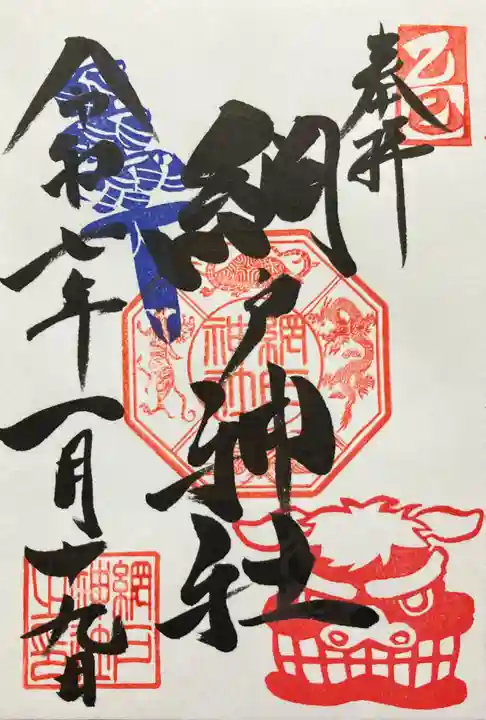 乙巳
奉拝
網戸神社
網戸神社
令和七年一月十九日
網戸神社之印